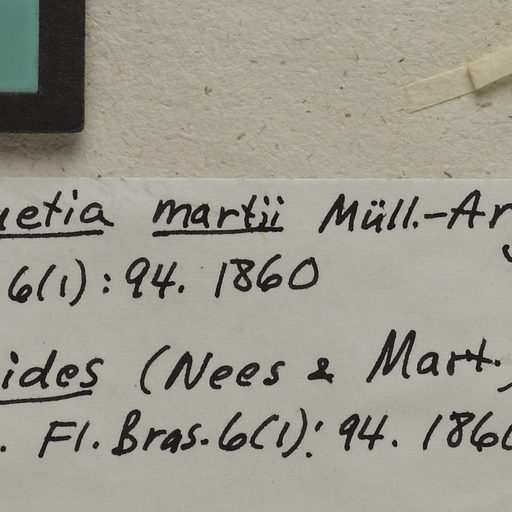 uetia martii Müll.-Ar
6(1): 94. 1860
ides (Nees & Mart.)
. Fl. Bras. 6(1): 94. 1860